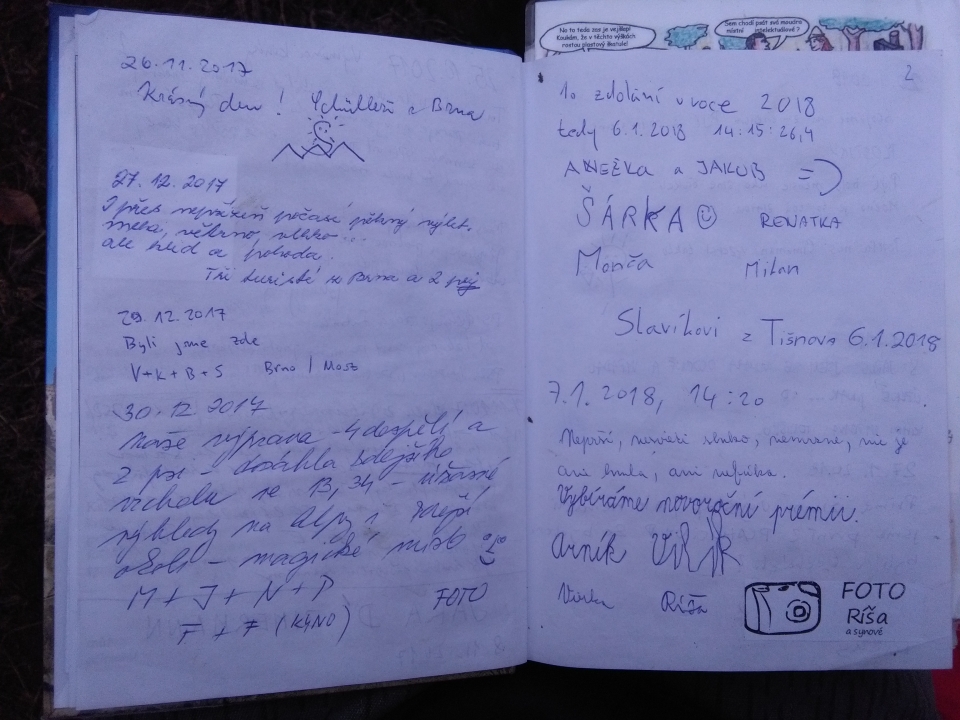 26.11.2017
Krásný den! z Brna
27.12.2017
I přes nepřízeň počasí pěkný výlet,
mlha, větrno, vlhko...
ale klid a pohoda.
Tři turisté z Brna a 2 psi
29.12.2017
Byli jsme zde
V+K+B+S Brno / Most
30.12.2017
Naše výprava - 4 dospělí a
2 psi - dosáhla zdejšího
vrcholu ve 13,34 - úžasné
výhledy na Alpy i zdejší
okolí - magické místo
M + J + N + P FOTO
F + F (KÁNO)
No to teda zas je vejšlap!
Koukám, že v těchto výškách
rostou plastový škatule!
Sem chodí psát svá moudra
místní intelektuálové?
2
1. zdolání v roce 2018
tedy 6.1.2018 14:15:26,4
ANEŽKA a JAKUB =)
ŠÁRKA RENATKA
Monča Milan
Slavíkovi z Tišnova 6.1.2018
7.1.2018, 14:20
Neprší, nesvítí slunko, nemrzne, nic je
ani, ani nefouká.
Vybíráme novoroční prémii.
Arník Vilík
Ríša
FOTO
Ríša
a synové